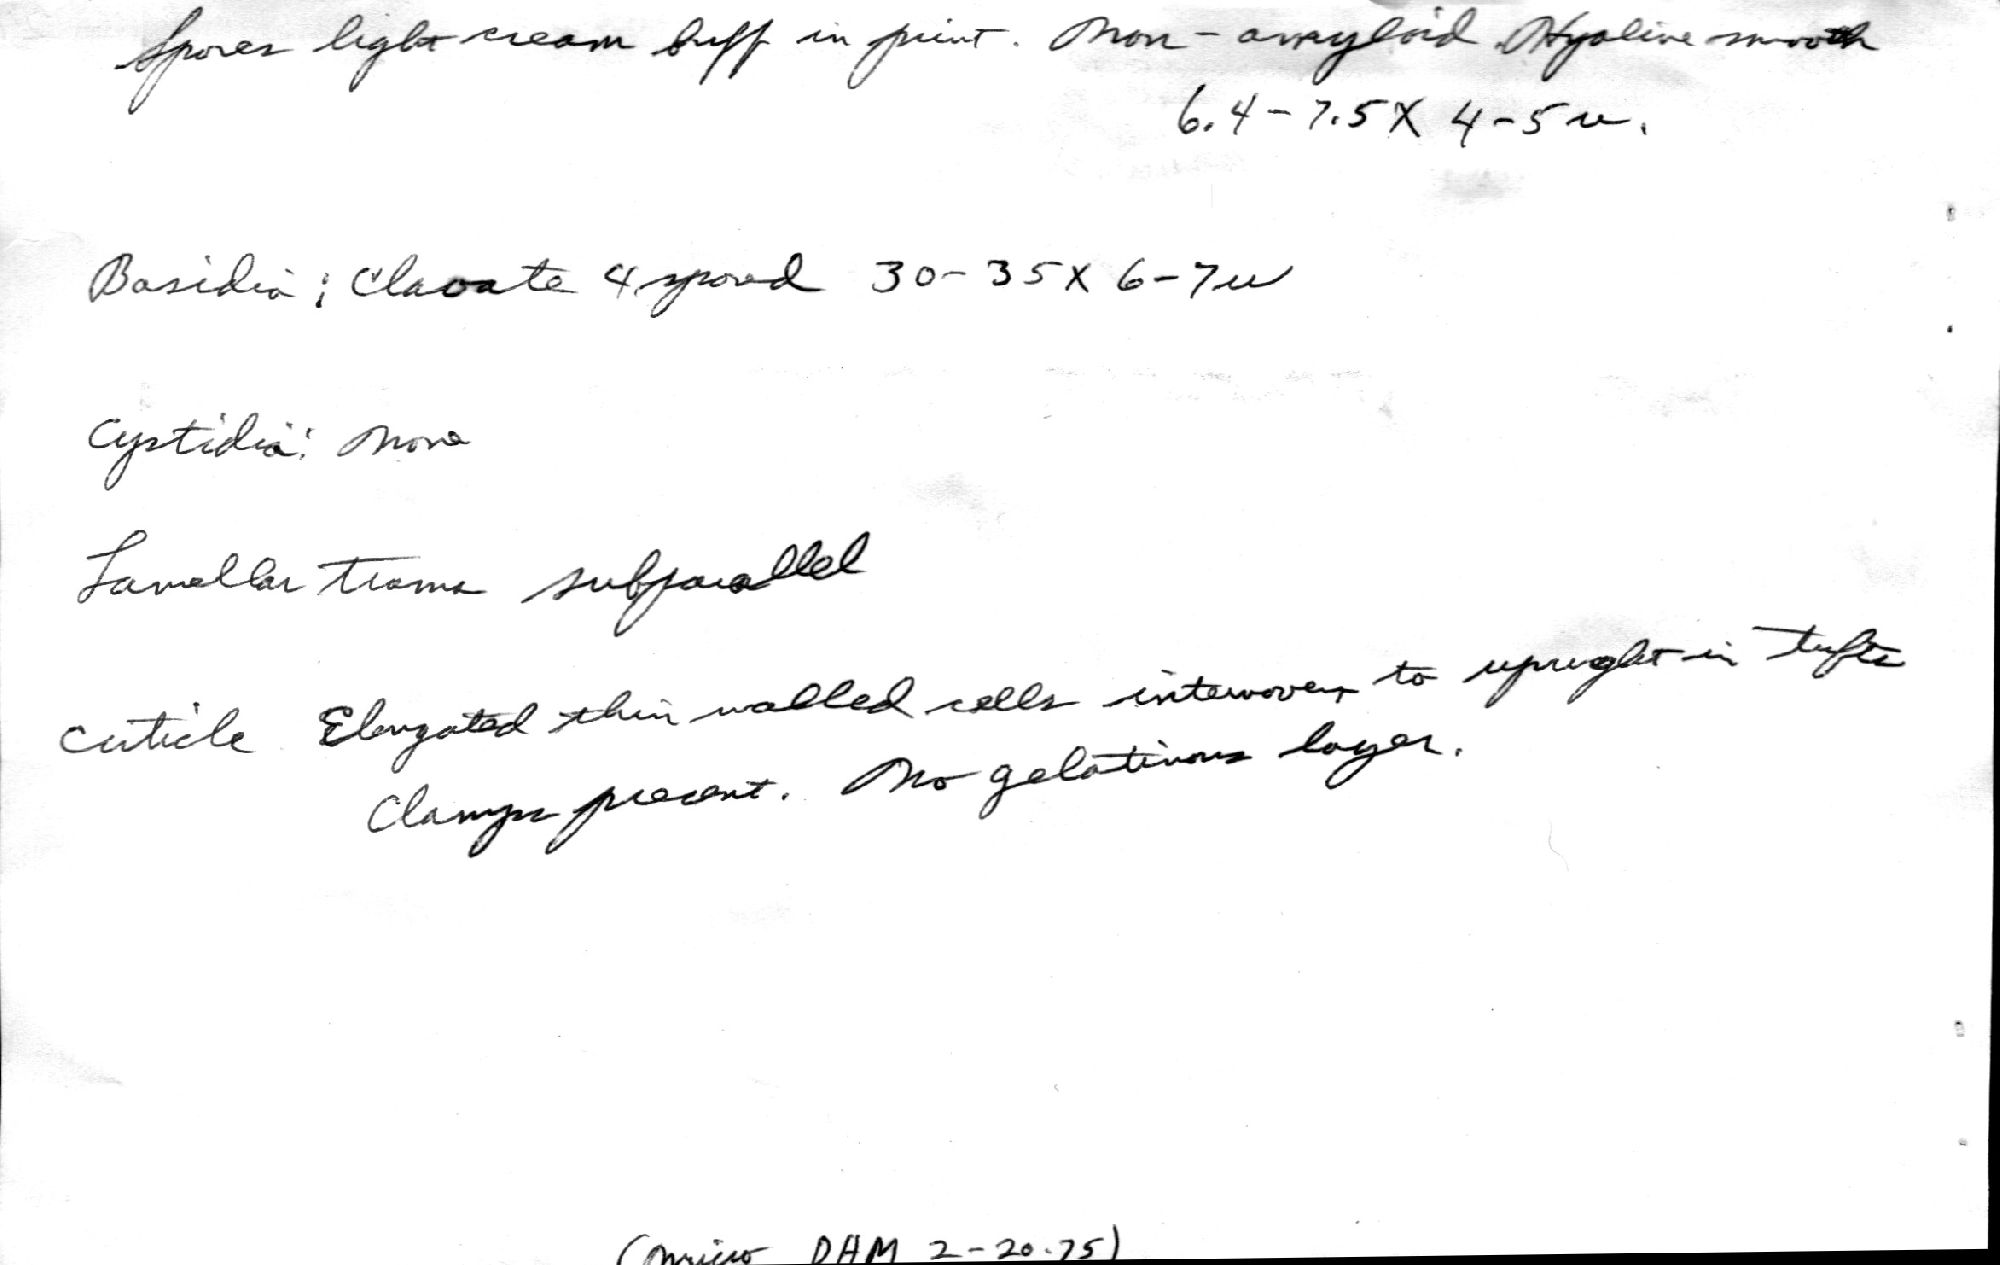 Spores light cream buff in print. Non-amyloid Hyaline smooth
6.4-7.5X 4-5u.
Basidia; Clavate 4 spored 30-35X 6-7u
Cystidia: None
Lamellar trama subparallel
Cuticle Elongated thin walled cells interwoven to upright in tufts
Clamps present. No gelatinous layer.
(Micro DHM 2-20-75)